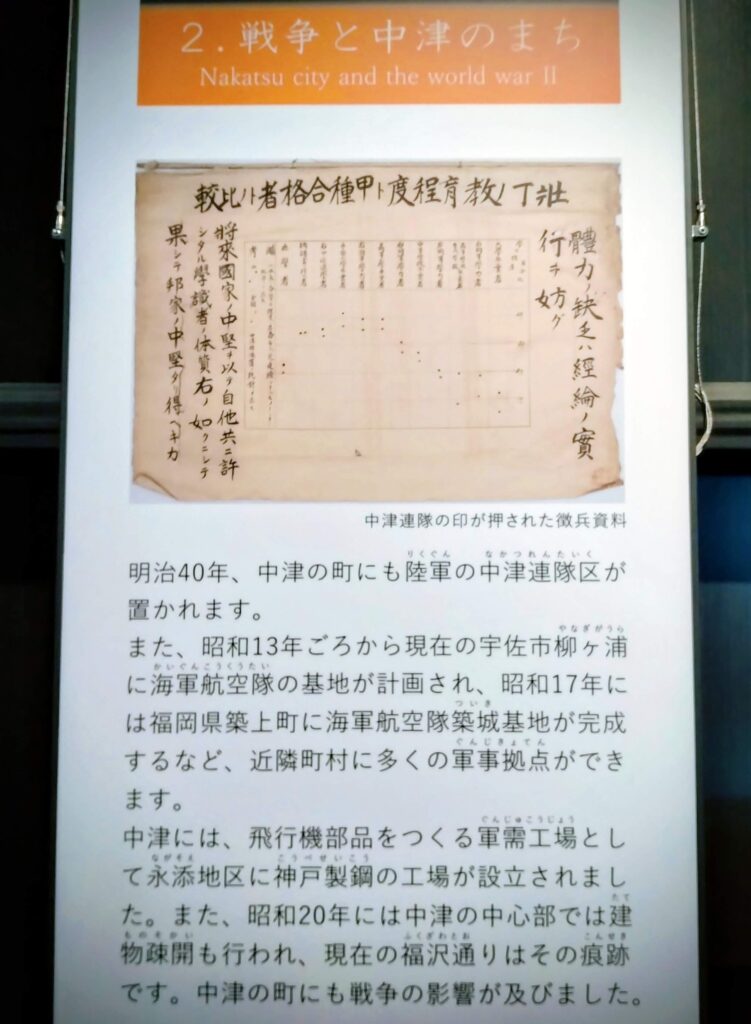 2.戦争と中津のまち
Nakatsu city and the world war II
壯丁ノ教育程度ト甲種合格者トノ比較
體力ノ缺乏ハ經綸ノ實
行ヲ妨グ
將來國家ノ中堅ヲ以テ自他共ニ許
シタル學識者ノ体質右ノ如クニシテ
果シテ邦家ノ中堅タリ得ヘキカ
中津連隊の印が押された徴兵資料
りくぐん なかつれんたいく
明治40年、中津の町にも陸軍の中津連隊区が
置かれます。
やなぎがうら
また、昭和13年ごろから現在の宇佐市柳ヶ浦
かいぐんこうくうたい
に海軍航空隊の基地が計画され、昭和17年に
ついき
は福岡県築上町に海軍航空隊築城基地が完成
ぐんじきょてん
するなど、近隣町村に多くの軍事拠点ができ
ます。
ぐんじゅこうじょう
中津には、飛行機部品をつくる軍需工場とし
ながそえ こうべせいこう
て永添地区に神戸製鋼の工場が設立されまし
たて
た。また、昭和20年には中津の中心部では建
ものそかい ふくざわとお こんせき
物疎開も行われ、現在の福沢通りはその痕跡
です。中津の町にも戦争の影響が及びました。